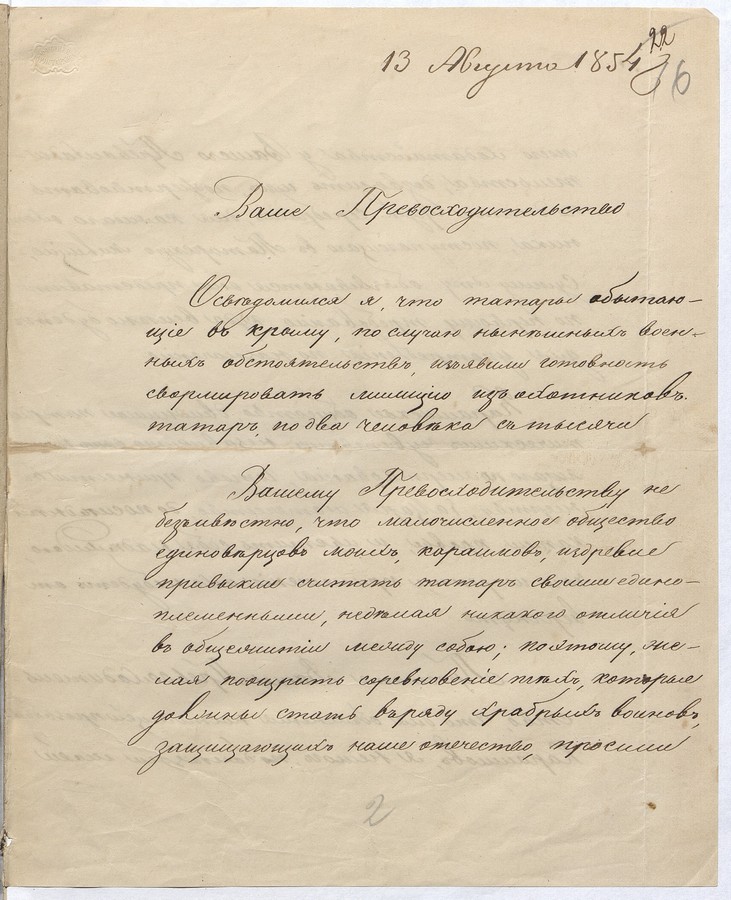 22
13 Августа 1854
6
Ваше Превосходительство
Освѣдомился я, что татары обытаю-
щіе въ крыму, по случаю нынѣшныхъ воен-
ныхъ обстоятельствъ, изъявили готовность
сформировать милицію изъ охотниковъ
татаръ, по два человѣка съ тысячи
Вашему Превосходительству не
безъизвѣстно, что малочисленное общество
единовѣрцовъ моихъ, караимовъ, издревле
привыкли считать татаръ своими едино-
племенными, недѣлая никакого отличія
въ общежитіи между собою; поэтому, же-
лая поощрить соревнованіе тѣхъ, которые
должны стать въ ряду храбрыхъ воиновъ,
защищающихъ наше отечество, просили
2